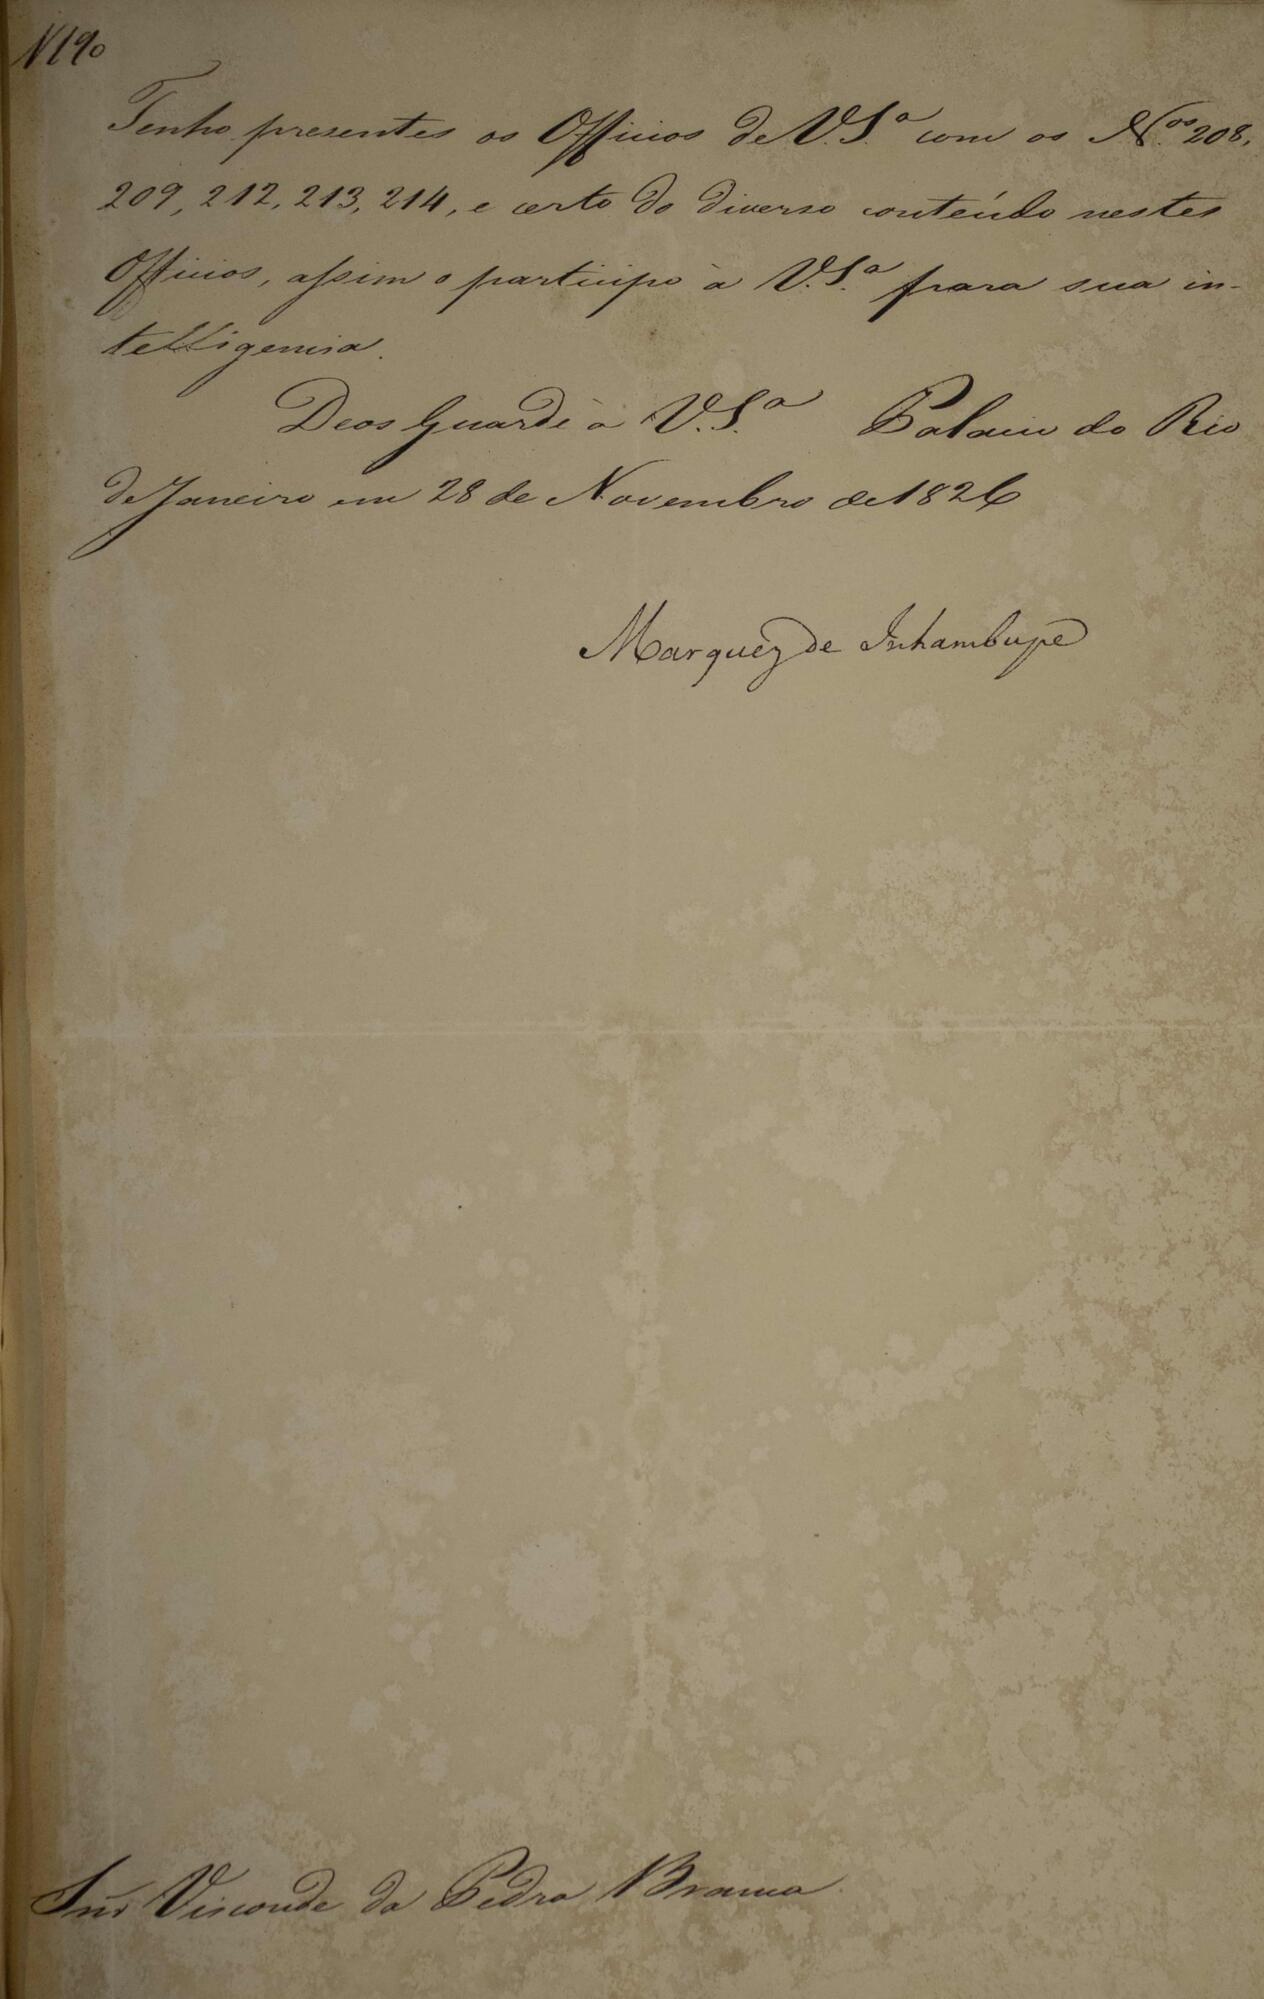 N 190
Tenho presentes os Officios de V.S.ª com os N.os 208,
209, 212, 213, 214, e certo do diverso conteúdo nestes
Officios, assim o participo à V.S.ª para sua in-
telligencia.
Deos Guarde à V.S.ª Palacio do Rio
de Janeiro em 28 de Novembro de 1826
Marquez de Inhambupe
Snr Visconde da Pedra Branca